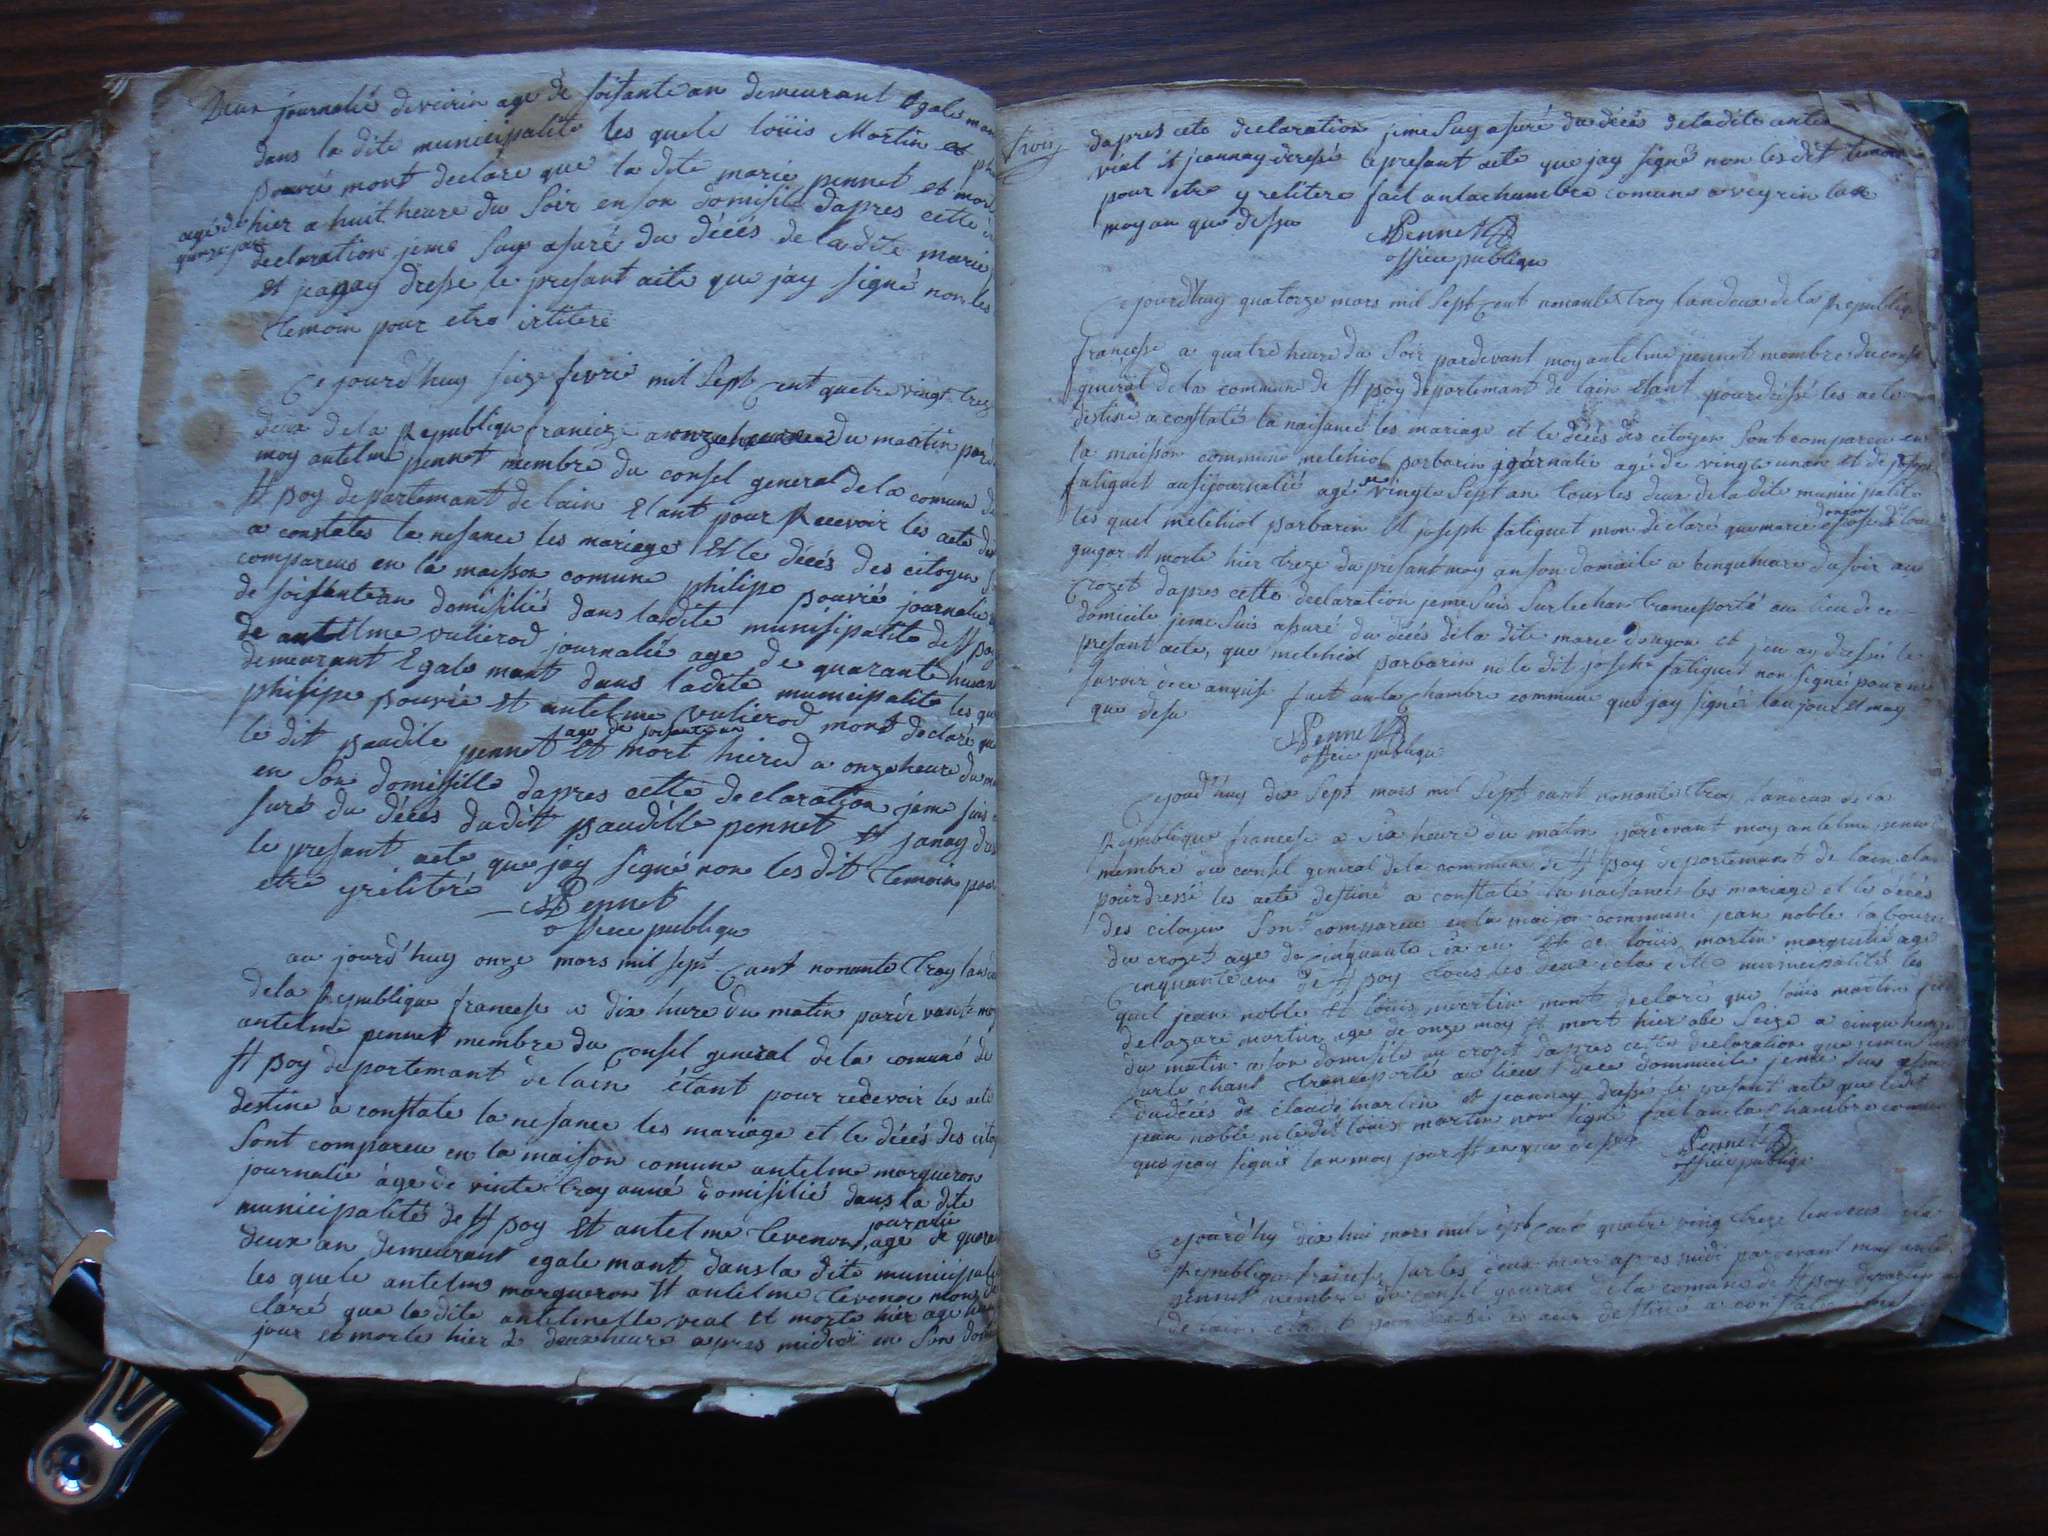 journalié de veirin age de soisante an demeurant Egale man
dans la dite municipalité les quele loüis Martin et
pouvié mont declare que la dite marie pennet et mort
agé de
hier a huit heure du soir en son domisile dapres cette
declaration jeme suy asuré du décés de la dite marie
et dresse le presant acte que jay signé non les
temoin pour etre
Ce jourd'huy seize fevrié mil sept cent quatre vingt trez
deux de la Republique du mattin par d
moy antelme pennet membre du consel general de la comune de
st poy departemant de lain Etant pour Recevoir les acte des
a constates la nesance les mariage et le décés des citoyen
compareus en la maison comune philipe pouvié journalié
de soissante an domisilié dans la dite munisipalite de st poy
de antelme vulierod journalié age de quarante
demeurant Egale mant dans la dite municipalite les que
philipe pouvié et antelme vulierod mont declaré que
age de soisante an
le dit paudile pennet et mort hierd a onze heure du ma
en son domisille dapres cette declaration jeme suis
suré du décés dudit paudille pennet et
le presant acte que jay signé non les dit temoin pour
etre
APennet
officie publique
au jourd'huy onze mars mil sept cant nonante troy lan
de la Republique francese a dix hure du matin pardevant moy
antelme pennet membre du consel general de la comune de
st poy departemant de lain étant pour recevoir les acte
destiné a constate la nesance les mariage et le décés des cito
sont compareu en la maison comune antelme margueron
journalié áge de vinte troy anné domisilié dans la dite
journalié
municipalité de st poy et antelme tevenon age de quara
deux an demeurant egale mant dans la dite municipal
les quele antelme margueron et antelme tevenon
claré que la dite antelmette vial et morte hier age
jour et morte hier a deux heure apres midi en son dom
trois
dapres cete declaration jeme suy asuré du décés de la dite ante
vial et jeannay dressé le presant acte que jay signé non les dit temoin
pour etre y relitere fait en la chambre comune a veyrin lan
moy an que dessu
APennet
officie publique
Ce jourdhuy quatorze mars mil sept cent nonante troy lan deux de la Republiq
francese a quatre heure du soir pardevant moy antelme pennet membre du conse
general de la commune de st poy departemant de lain Etant pour dressé les acte
destiné a constaté la naisance les mariage et le décés des citoyen sont compareu en
la maison commune melchiol parbarin journalié agé de vingt unan et de joseph
fatiguet ausi journalié agé de vingt sept an tous les deux de la dite municipalité
dongon
les quel melchiol parbarin et joseph fatiguet mon déclaré que marie
guigar et morte hier treze du présant moy an son domicile a cinqu hure du soir au
Crozet dapres cette declaration jeme suis sur lechan transporté au lieu de ce
domicile jeme suis asuré du décés de la dite marie dongon et jen ay dressé le
presant acte, que melchiol parbarin ni le dit joseph fatiguet non signé pour ne
savoir de ce anquis fait an la chambre commune que jay signé lan jour et moy
que desu
APennet
officie publique
Ce jourd'huy dix sept mars mil sept cant nonante troy lan deux de la
Republique francese a six heure du matin pardevant moy antelme penne
membre du consel general de la commune de st poy departemant de lain etan
pour dressé les acte destiné a constaté la naisance les mariage et le décés
des citoyen sont compareu en la maison commune jean noble laboure
du crozet age de cinquante six an et de loüis martin marguilié age
cinquante an de st poy tous les deux de la dite municipalité les
quel jean noble et louis martin mont declaré que loüis martin fils
de lazare martin age de onze moy et mort hier seize a cinqu heure
du matin a son domisile au crozet dapres cette declaration
sur le chant transporté au lieux de ce dommicile jeme suis asuré
du décés de claude martin et jeannay dressé le presant acte que le dit
jean noble ni le dit louis martin non signé fait an la chambre comune
que jeay signé lan moy jour et an que desu
Pennet
officie publique
Ce jourd'huy dix hui mars mil sept cant quatre ving treze lan deux de la
Republique francese sur les deux heure apres midi par devant moy ante
pennet membre du consel general de la comune de st poy departem
de lain etant pour dressé les acte destiné a constaté